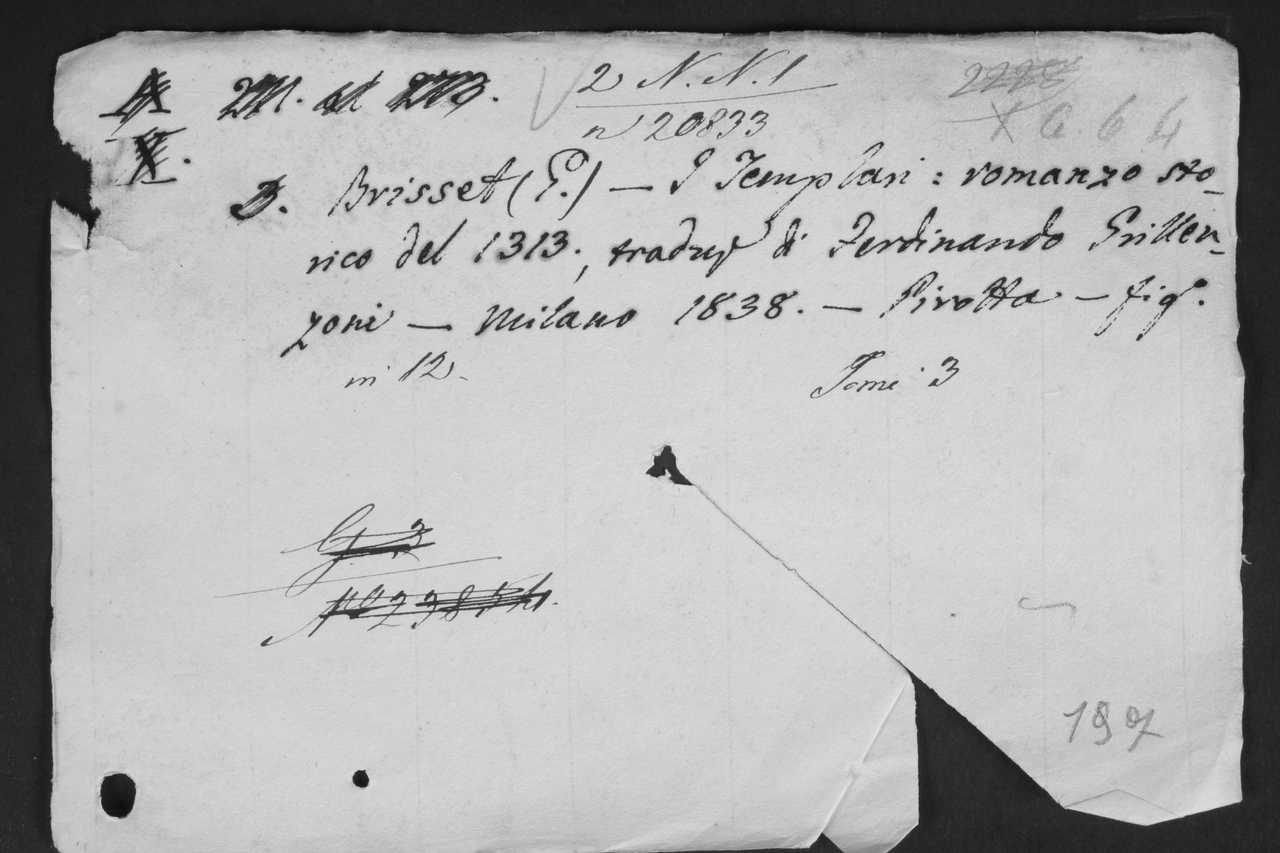 2 N. N. 1
n 20833
664
3. Brisset (E.) — I Templari : romanzo sto-
rico del 1313., traduz. di Ferdinando Grillen-
zoni — Milano 1838. — Pirotta — fig.
in 12.
Tomi 3
G. 3
197